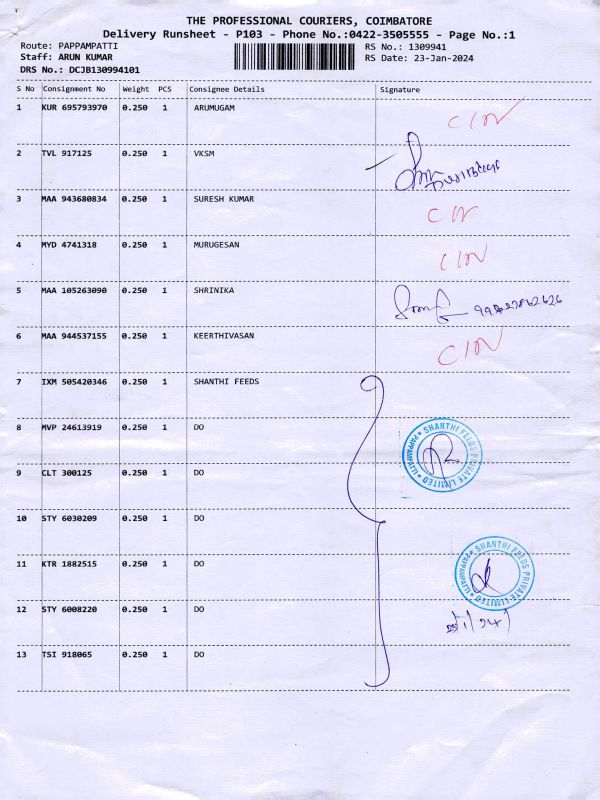 THE PROFESSIONAL COURIERS, COIMBATORE
Delivery Runsheet - P103 - Phone No.:0422-3505555 - Page No.:1
Route: PAPPAMPATTI RS No.: 1309941
Staff: ARUN KUMAR RS Date: 23-Jan-2024
DRS No.: DCJB130994101
S No Consignment No Weight PCS Consignee Details Signature
1 KUR 695793970 0.250 1 ARUMUGAM
2 TVL 917125 0.250 1 VKSM
3 MAA 943680834 0.250 1 SURESH KUMAR
4 MYD 4741318 0.250 1 MURUGESAN
5 MAA 105263090 0.250 1 SHRINIKA
6 MAA 944537155 0.250 1 KEERTHIVASAN
7 IXM 505420346 0.250 1 SHANTHI FEEDS
8 MVP 24613919 0.250 1 DO
SHANTHI FEEDS PRIVATE LIMITED
PAPPAMPATTI
9 CLT 300125 0.250 1 DO
10 STY 6030209 0.250 1 DO
11 KTR 1882515 0.250 1 DO
SHANTHI FEEDS PRIVATE LIMITED
PAPPAMPATTI
12 STY 6008220 0.250 1 DO
13 TSI 918065 0.250 1 DO